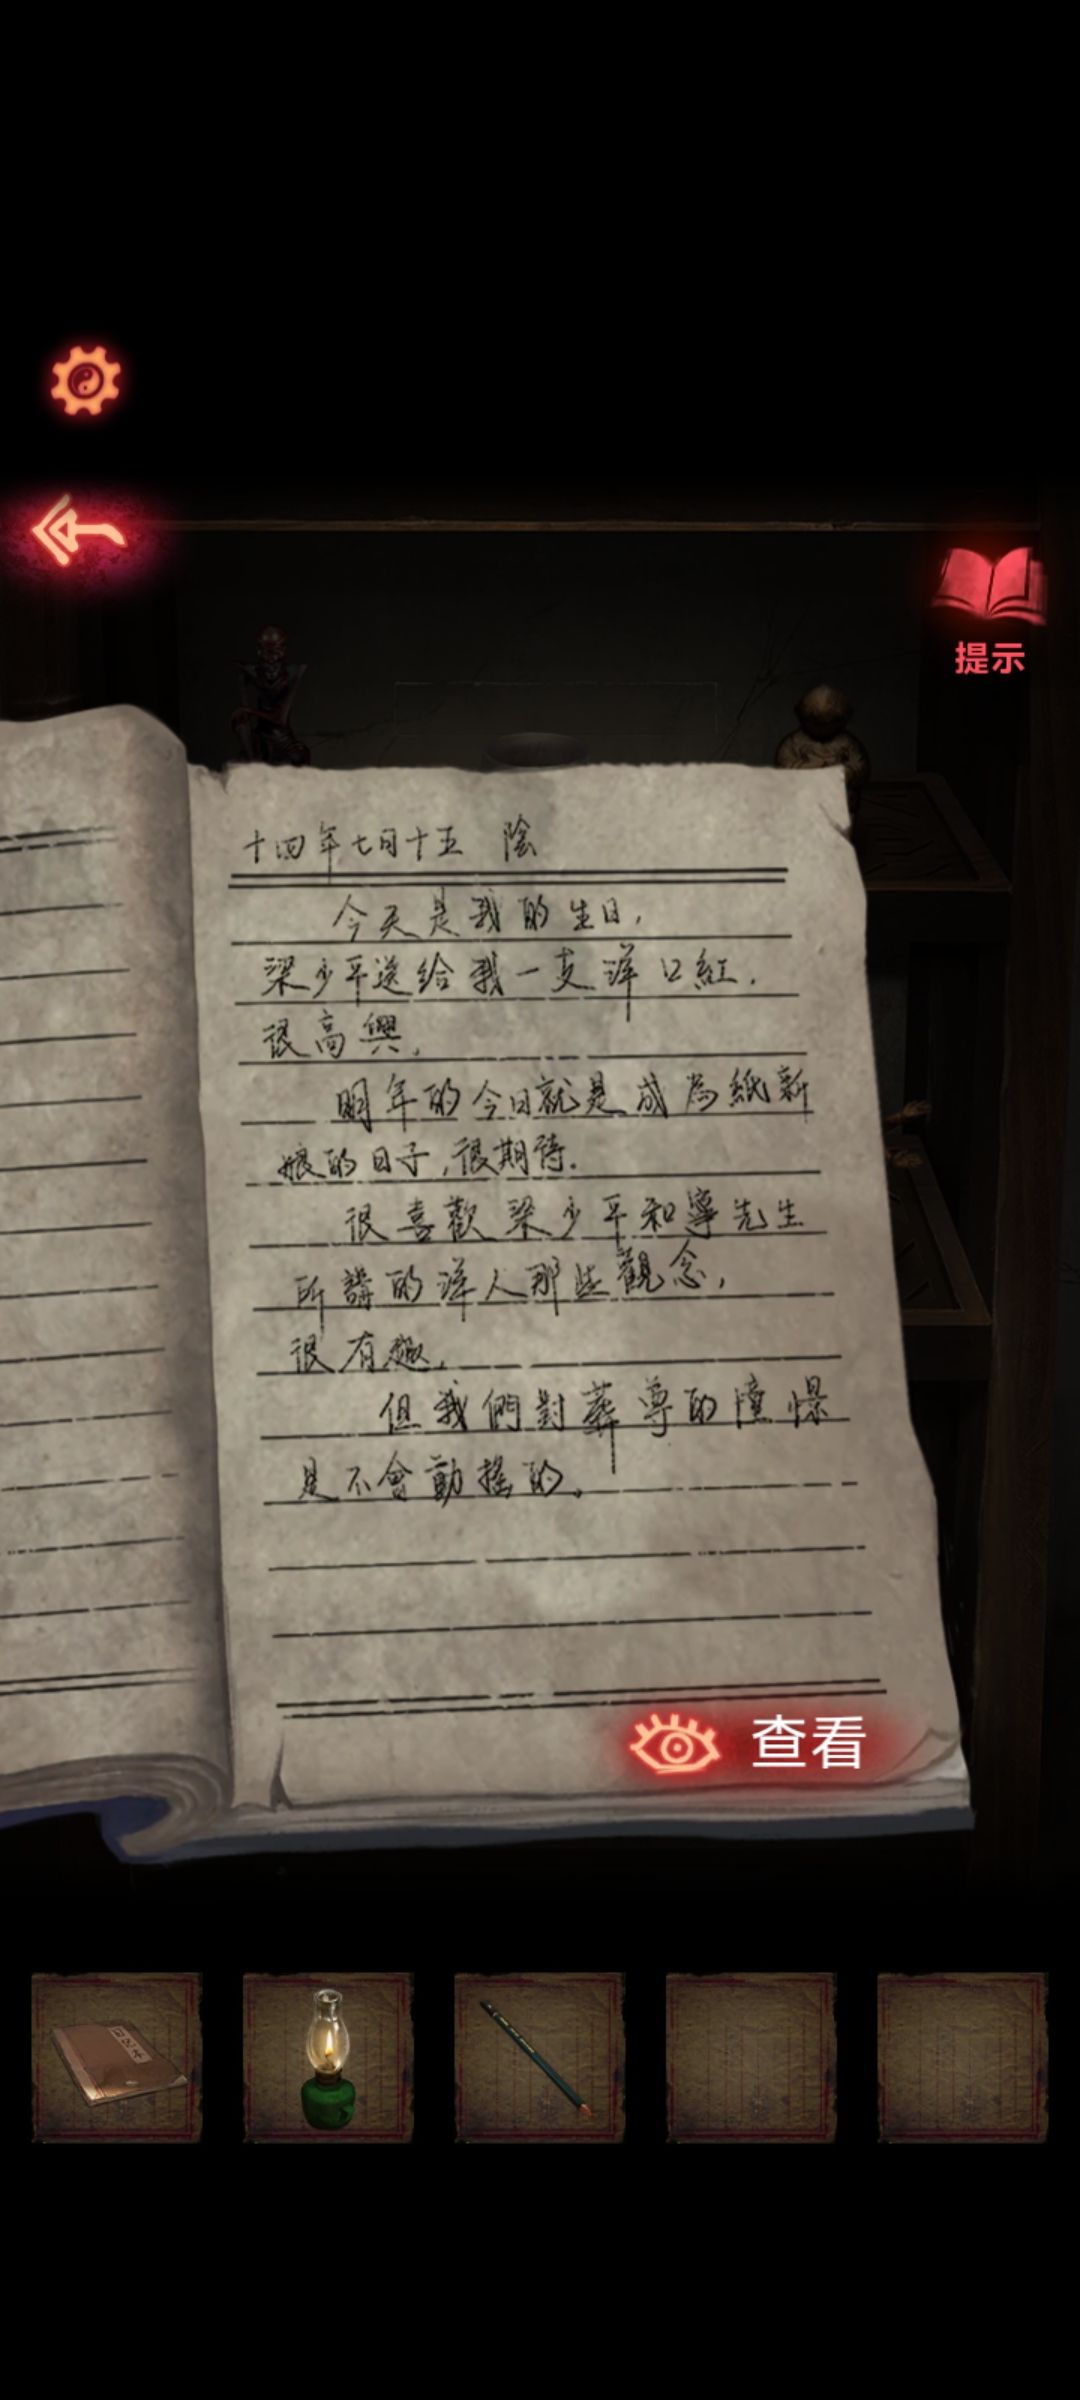 提示
十四年七月十五 陰
今天是我的生日,
梁少平送給我一支洋口紅.
很高興.
明年的今日就是成為紙新
娘的日子,很期待.
很喜歡梁少平和寧先生
所講的洋人那些觀念,
很有趣.
但我們對葬尊的憧憬
是不會動搖的。
查看